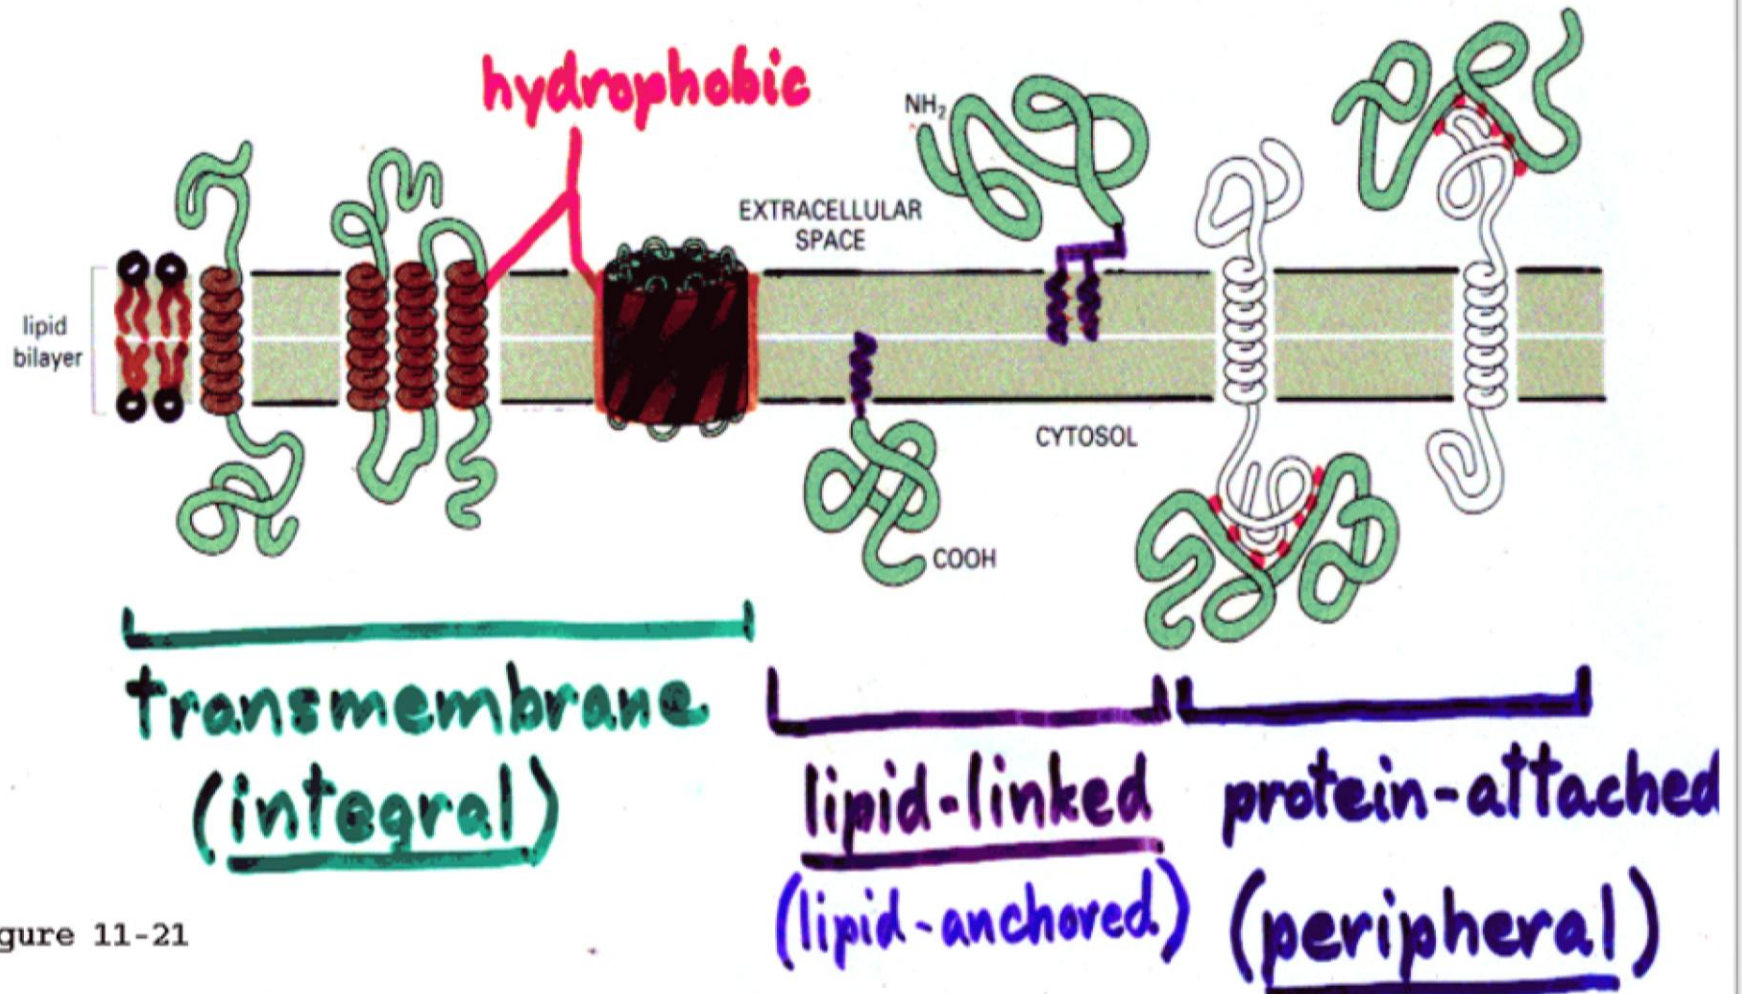 hydrophobic
NH2
EXTRACELLULAR
SPACE
lipid
bilayer
CYTOSOL
COOH
transmembrane
(integral)
lipid-linked
(lipid-anchored)
protein-attached
(peripheral)
gure 11-21